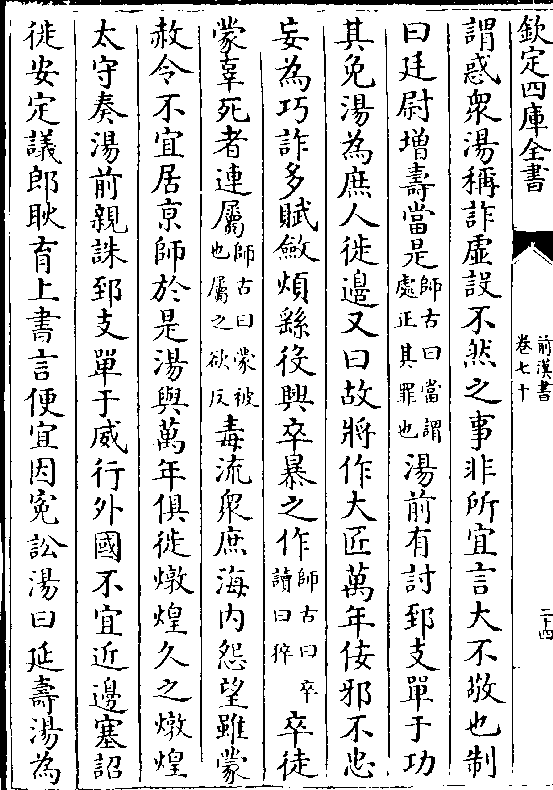 欽定四庫全書
前漢書
卷七十
二十四
謂惑衆湯稱詐虛設不然之事非所宜言大不敬也制
曰廷尉增壽當是師古曰當謂處正其罪也湯前有討郅支單于功
其免湯為庶人徙邉又曰故將作大匠萬年佞邪不忠
妄為巧詐多賦斂煩繇役興卒暴之作師古曰卒讀曰猝卒徒
蒙辜死者連屬師古曰蒙被也屬之欲反毒流衆庶海内怨望雖蒙
赦令不宜居京師於是湯與萬年俱徙燉煌久之燉煌
太守奏湯前親誅郅支單于威行外國不宜近邊塞詔
徙安定議郎耿育上書言便宜因寃訟湯曰延壽湯為